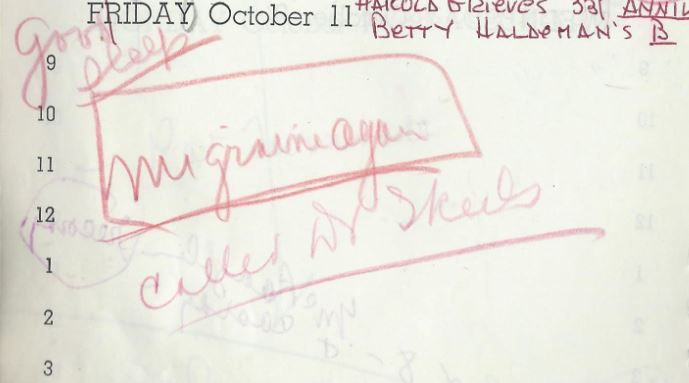 FRIDAY October 11
HAROLD GRIEVES 33
BETTY HALDEMAN'S B
Good
Sleep
9
10
Migraine again
11
12
Called Dr Skeels
1
2
3